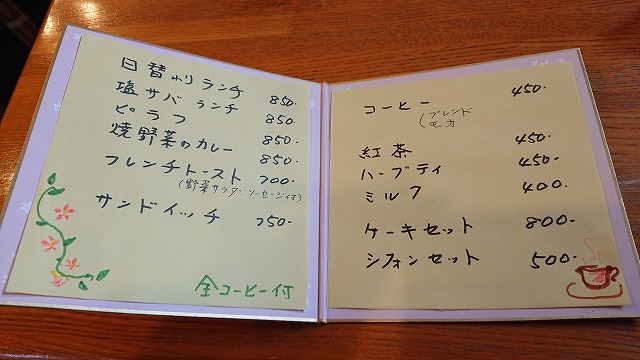 日替わりランチ 850-
塩サバランチ 850-
ピラフ 850-
焼野菜のカレー 850-
フレンチトースト 700-
(野菜サラダ・ソーセージ付)
サンドイッチ 750-
全コーヒー付
コーヒー 450-
(ブレンド
モカ
紅茶 450-
ハーブティ 450-
ミルク 400-
ケーキセット 800-
シフォンセット 500-